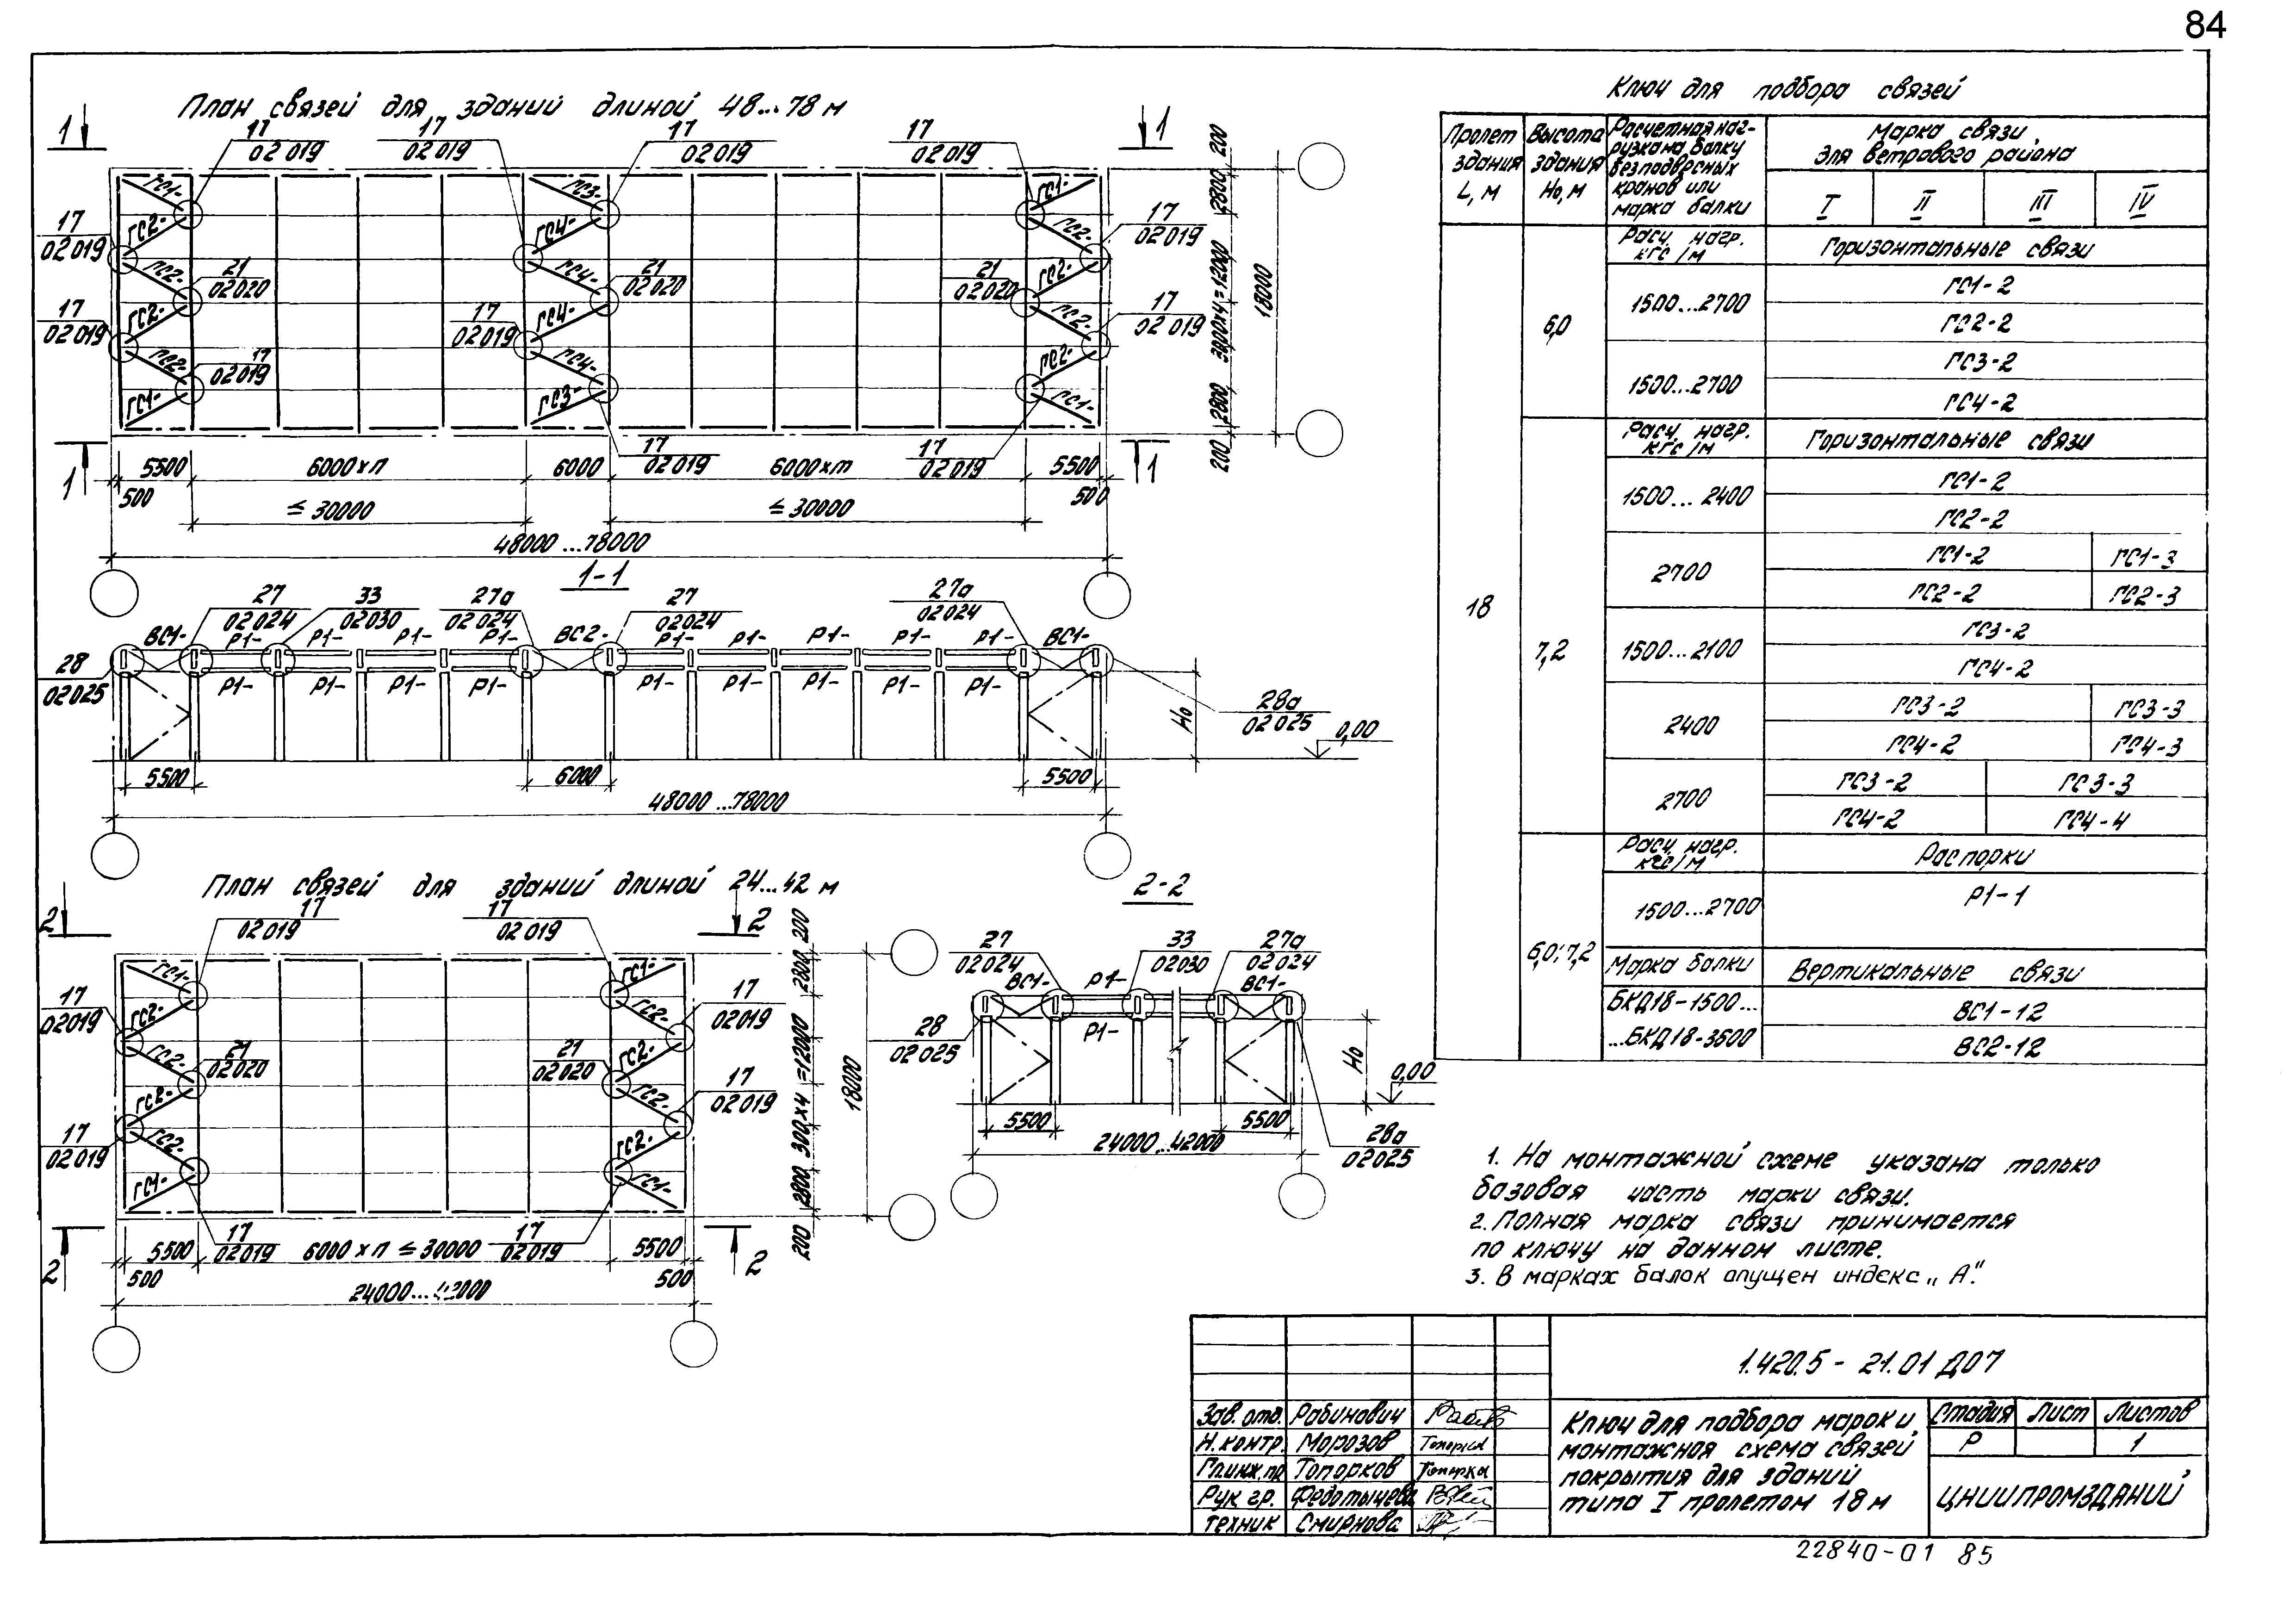 84
План связей для зданий длиной 48...78 м
1 1
17 02019 17 02019 17 02019 17 02019
ГС1- ГС3- ГС1-
17 02019 ГС2- ГС4- ГС2- 17 02019
ГС2- 21 02020 ГС4- 21 02020 21 02020 ГС2-
17 02019 ГС2- 17 02019 ГС4- ГС2- 17 02019
ГС2- 17 02019 ГС4- ГС2-
ГС1- ГС3- ГС1-
200 2800 3000х4=12000 2800 200
18000
17 02019 17 02019
1 5500 6000хn 6000 6000хm 5500 1
500 ≤30000 ≤30000 500
48000...78000
1-1
27 02024 33 02030 27а 02024 27 02024 27а 02024
ВС1- Р1- Р1- Р1- Р1- ВС2- Р1- Р1- Р1- Р1- Р1- ВС1-
28 02025 Р1- Р1- Р1- Р1- Р1- Р1- Р1- Р1- Р1-
Н₀ 28а 02025 0,00
5500 6000 5500
48000...78000
План связей для зданий длиной 24...42 м
2 2
17 02019 17 02019
ГС1- ГС1-
17 02019 ГС2- ГС2- 17 02019
ГС2- 21 02020 21 02020 ГС2-
ГС2- ГС2- 17 02019
17 02019 ГС2- ГС2-
ГС1- ГС1-
200 2800 300х4=12000 2800 200
18000
17 02019 17 02019
2 5500 6000хn≤30000 5500 2
500 500
24000...42000
2-2
27 02024 33 02030 27а 02024
ВС1- Р1- ВС1-
28 02025 Р1- Н₀ 0,00
5500 5500
24000...42000 28а 02025
Ключ для подбора связей
Пролет здания L, м
Высота здания Н₀, м
Расчетная нагрузка на балку без подвесных кранов или марка балки
Марка связи для ветрового района
I II III IV
18
6,0
Расч. нагр. кгс/м Горизонтальные связи
1500...2700 ГС1-2
ГС2-2
1500...2700 ГС3-2
ГС4-2
7,2
Расч. нагр. кгс/м Горизонтальные связи
1500...2400 ГС1-2
ГС2-2
2700 ГС1-2 ГС1-3
ГС2-2 ГС2-3
1500...2100 ГС3-2
ГС4-2
2400 ГС3-2 ГС3-3
ГС4-2 ГС4-3
2700 ГС3-2 ГС3-3
ГС4-2 ГС4-4
6,0; 7,2
Расч. нагр. кгс/м Распорки
1500...2700 Р1-1
Марка балки Вертикальные связи
БКД18-1500... ВС1-12
...БКД18-3600 ВС2-12
1. На монтажной схеме указана только
базовая часть марки связи.
2. Полная марка связи принимается
по ключу на данном листе.
3. В марках балок опущен индекс „А".
1.420.5-21.01 Д07
Зав. отд. Рабинович
Н. контр. Морозов
Гл.инж.пр Топорков
Рук гр. Федотычева
техник Смирнова
Ключ для подбора марок и
монтажная схема связей
покрытия для зданий
типа I пролетом 18 м
Стадия Лист Листов
Р 1
ЦНИИПРОМЗДАНИЙ
22840-01 85